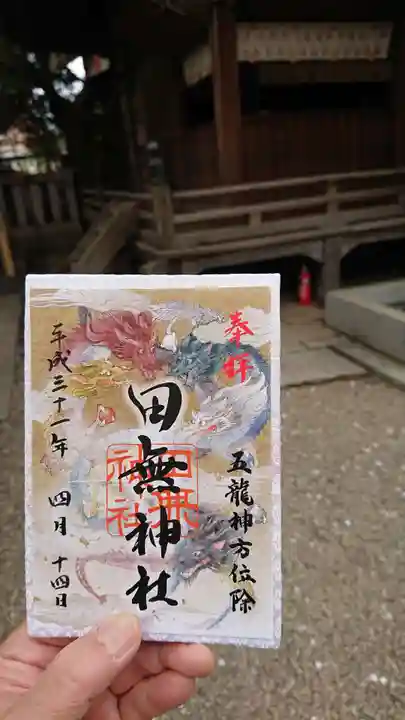 奉拝
五龍神方位除
田無神社
田無神社
平成三十一年 四月 十四日